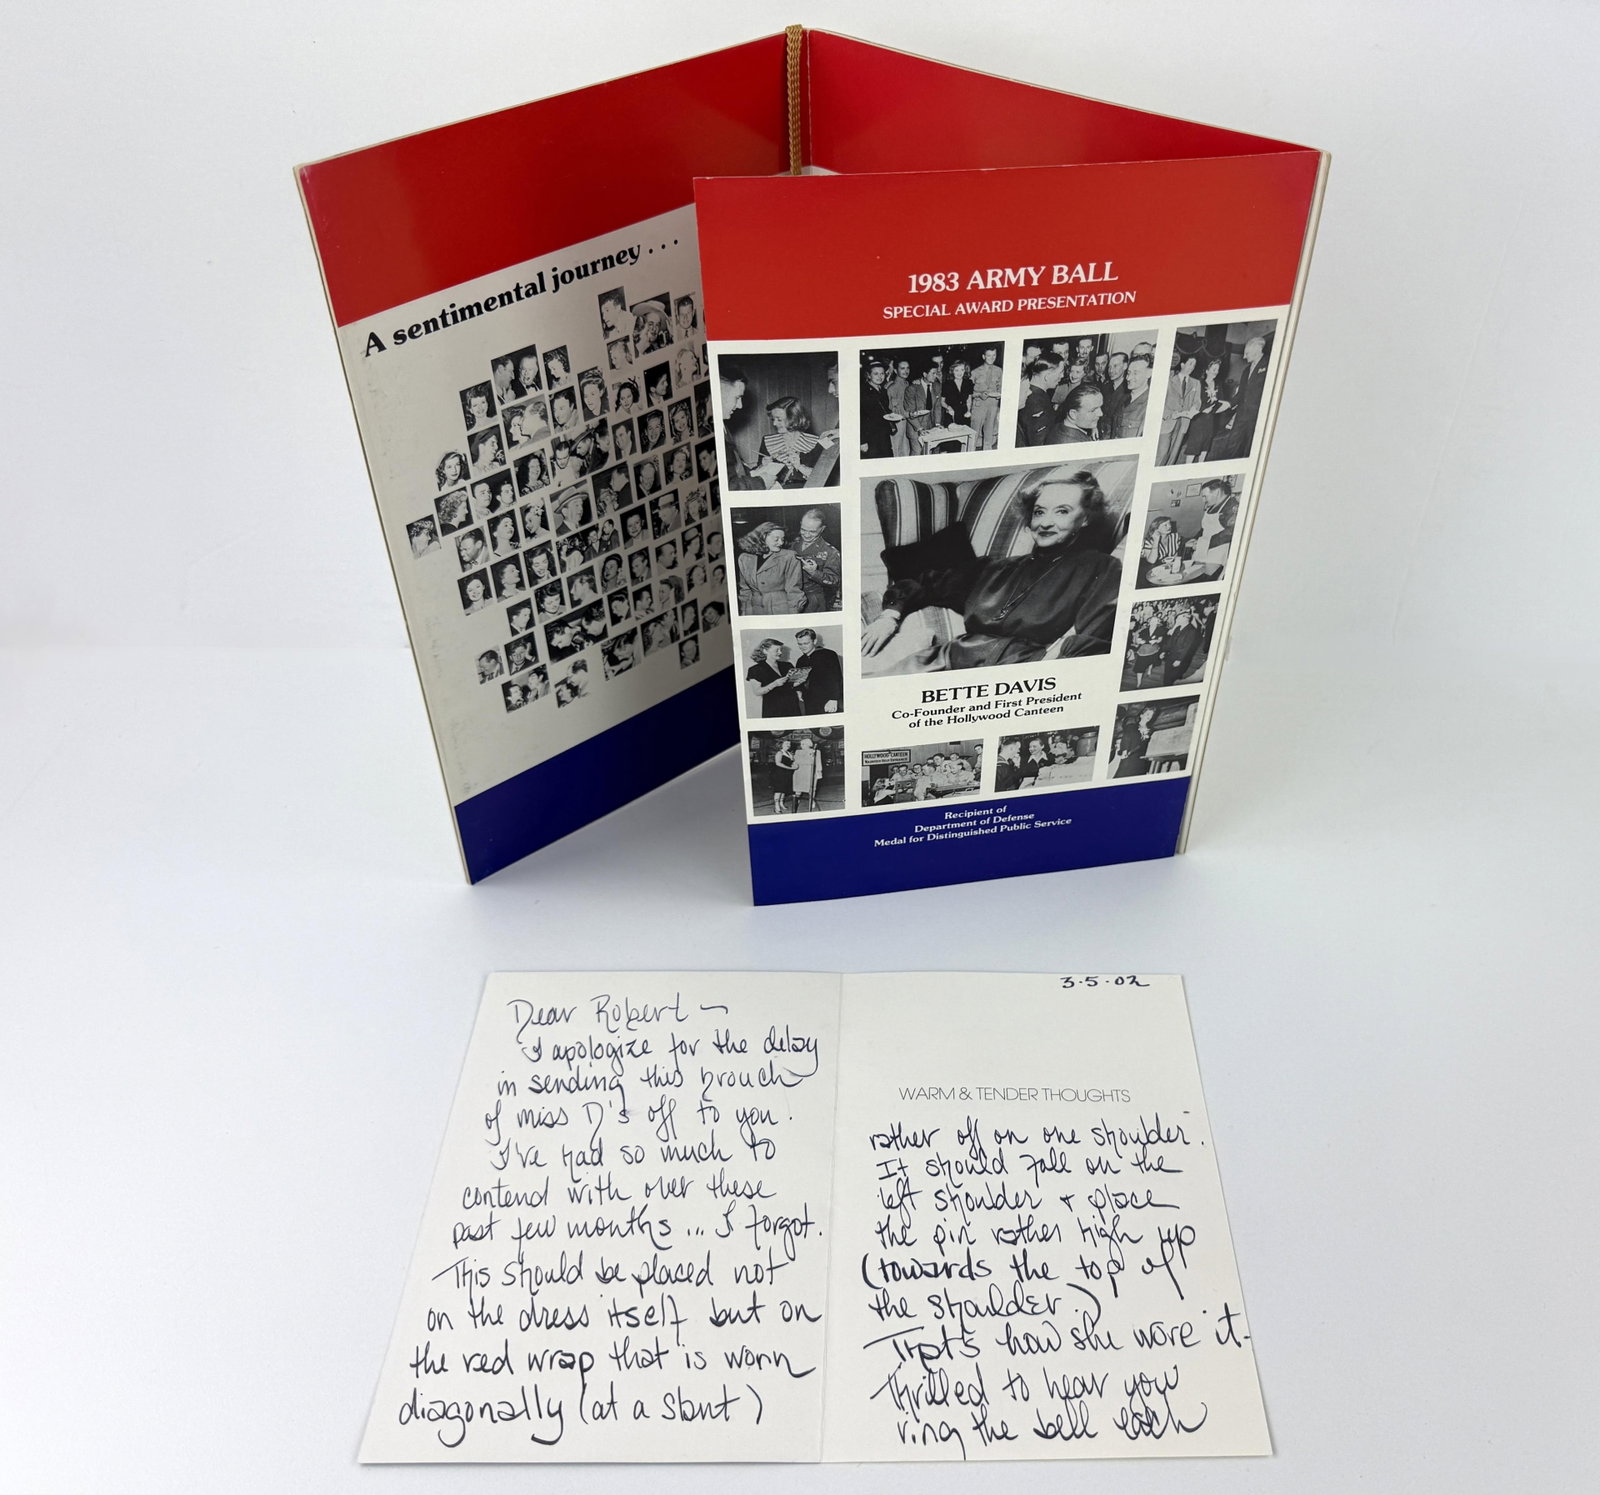 A sentimental journey . . .
1983 ARMY BALL
SPECIAL AWARD PRESENTATION
BETTE DAVIS
Co-Founder and First President
of the Hollywood Canteen
HOLLYWOOD CANTEEN
Recipient of
Department of Defense
Medal for Distinguished Public Service
Dear Robert ~
I apologize for the delay
in sending this brouch
of miss D's off to you.
I've had so much to
contend with over these
past few months... I forgot.
This should be placed not
on the dress itself but on
the red wrap that is worn
diagonally (at a slant)
3.5.02
WARM & TENDER THOUGHTS
rather off on one shoulder.
It should fall on the
left shoulder + place
the pin rather high up
(towards the top of
the shoulder.)
That's how she wore it.
Thrilled to hear you
ring the bell each